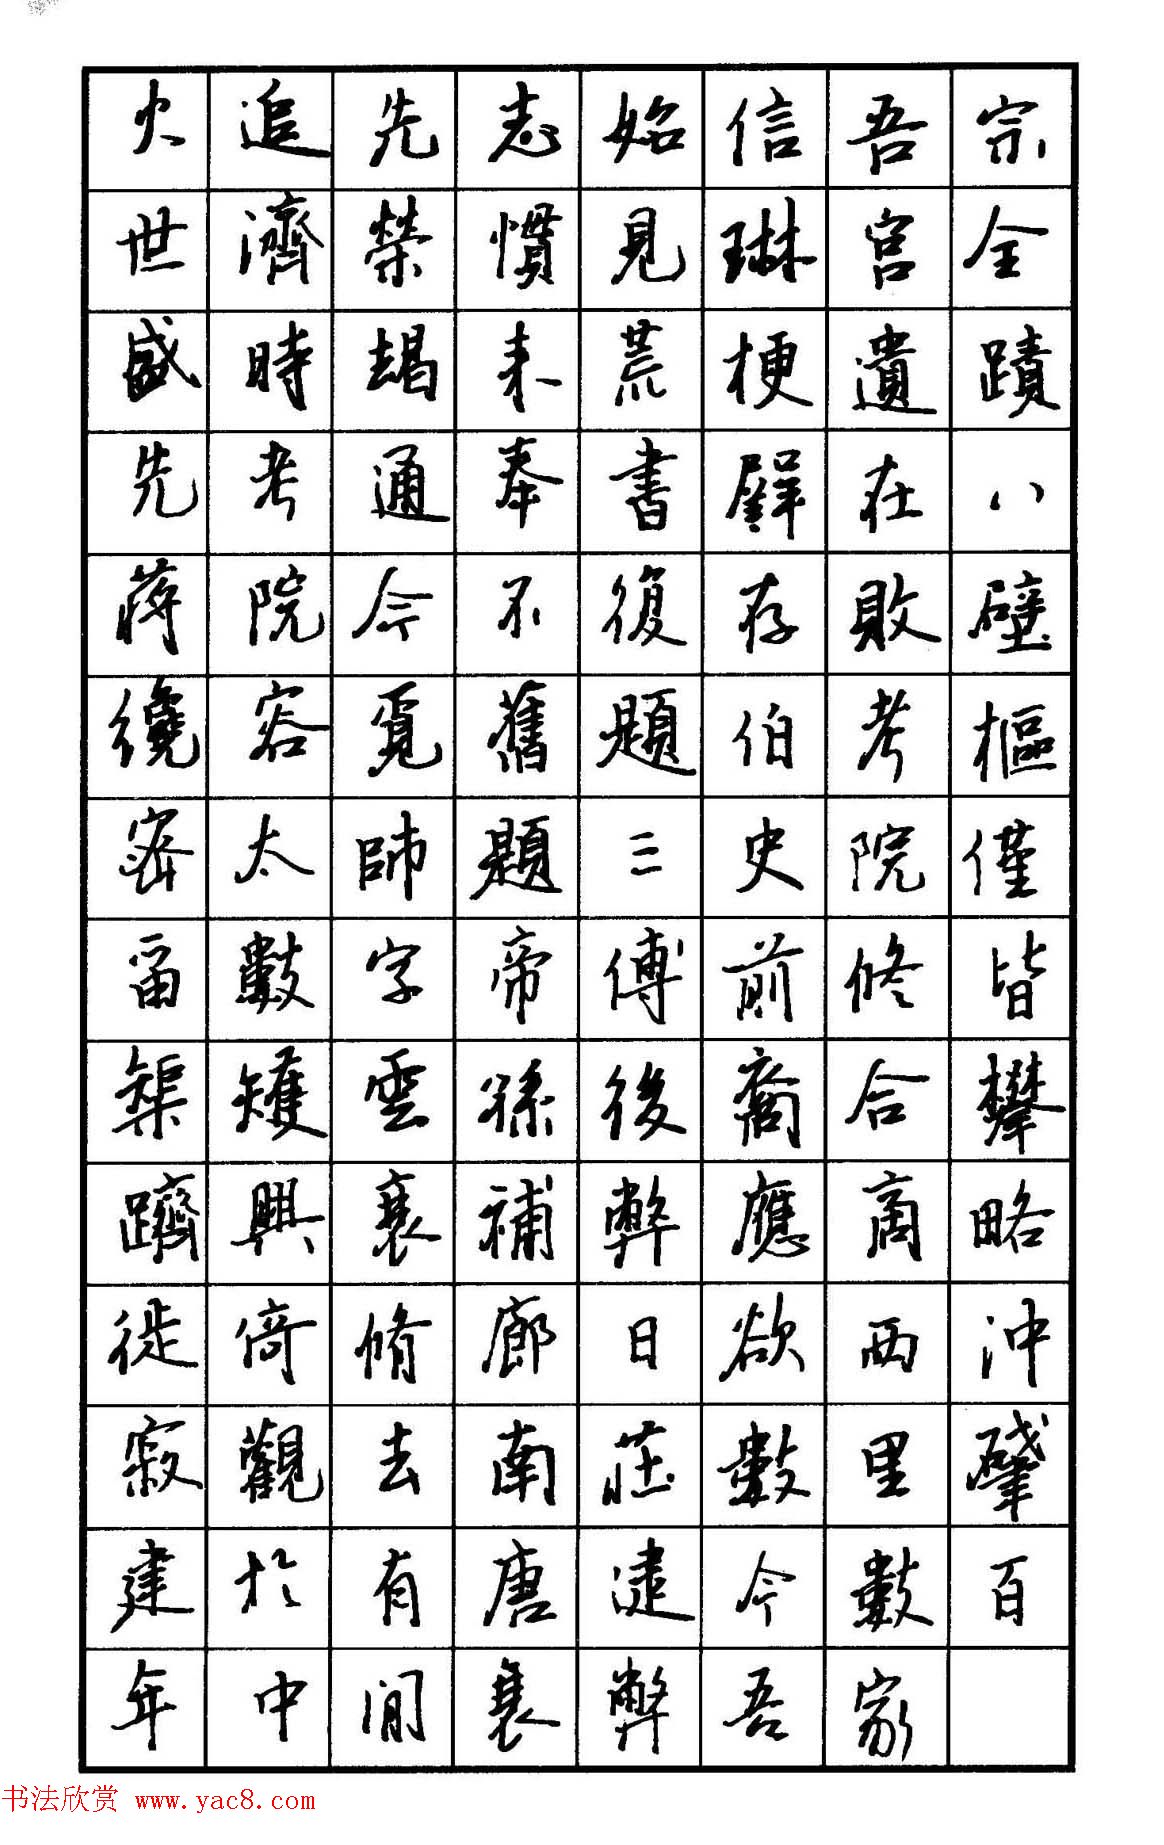 火追先志始信吾宗
世濟榮慣見琳宮全
盛時朅来荒梗遺蹟
先考通奉書在八
蔣院今不復存敗壁
纔容覓舊題伯考樞
密太師題三史院僅
留數字帝傅前修皆
榘矱雲孫後裔合攀
躋興衰補弊應商略
徙倚脩廊日欲西沖
寂觀去南莊數里肇
建於有唐逮今數百
年中間衰弊吾家
书法欣赏 www.yac8.com